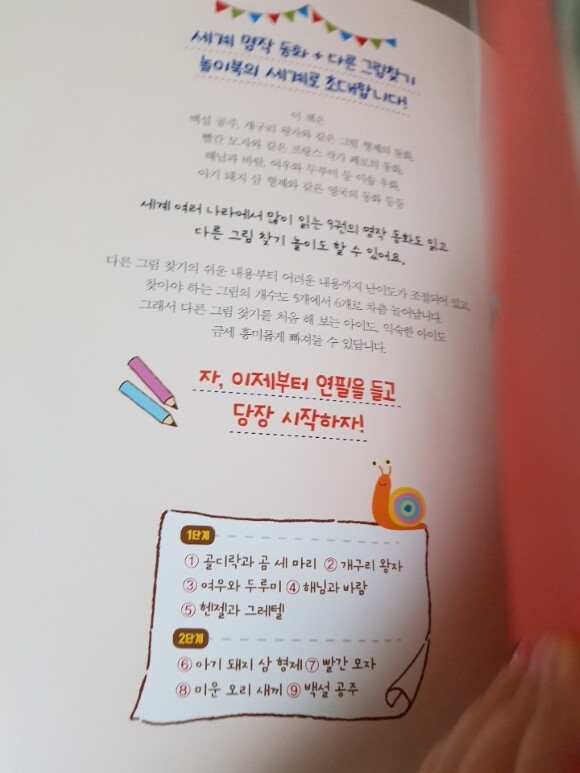 세계 명작 동화 + 다른 그림찾기
놀이북의 세계로 초대합니다!
이 책은
백설 공주, 개구리 왕자와 같은 그림 형제의 동화,
빨간 모자와 같은 프랑스 작가 페로의 동화,
해님과 바람, 여우와 두루미 등 이솝 우화,
아기 돼지 삼 형제와 같은 영국의 동화 등등
세계 여러 나라에서 많이 읽는 9권의 명작 동화도 읽고
다른 그림 찾기 놀이도 할 수 있어요.
다른 그림 찾기의 쉬운 내용부터 어려운 내용까지 난이도가 조절되어 있고,
찾아야 하는 그림의 개수도 5개에서 6개로 차츰 늘어납니다.
그래서 다른 그림 찾기를 처음 해 보는 아이도, 익숙한 아이도
금세 흥미롭게 빠져들 수 있답니다.
자, 이제부터 연필을 들고
당장 시작하자!
1단계
① 골디락과 곰 세 마리 ② 개구리 왕자
③ 여우와 두루미 ④ 해님과 바람
⑤ 헨젤과 그레텔
2단계
⑥ 아기 돼지 삼 형제 ⑦ 빨간 모자
⑧ 미운 오리 새끼 ⑨ 백설 공주